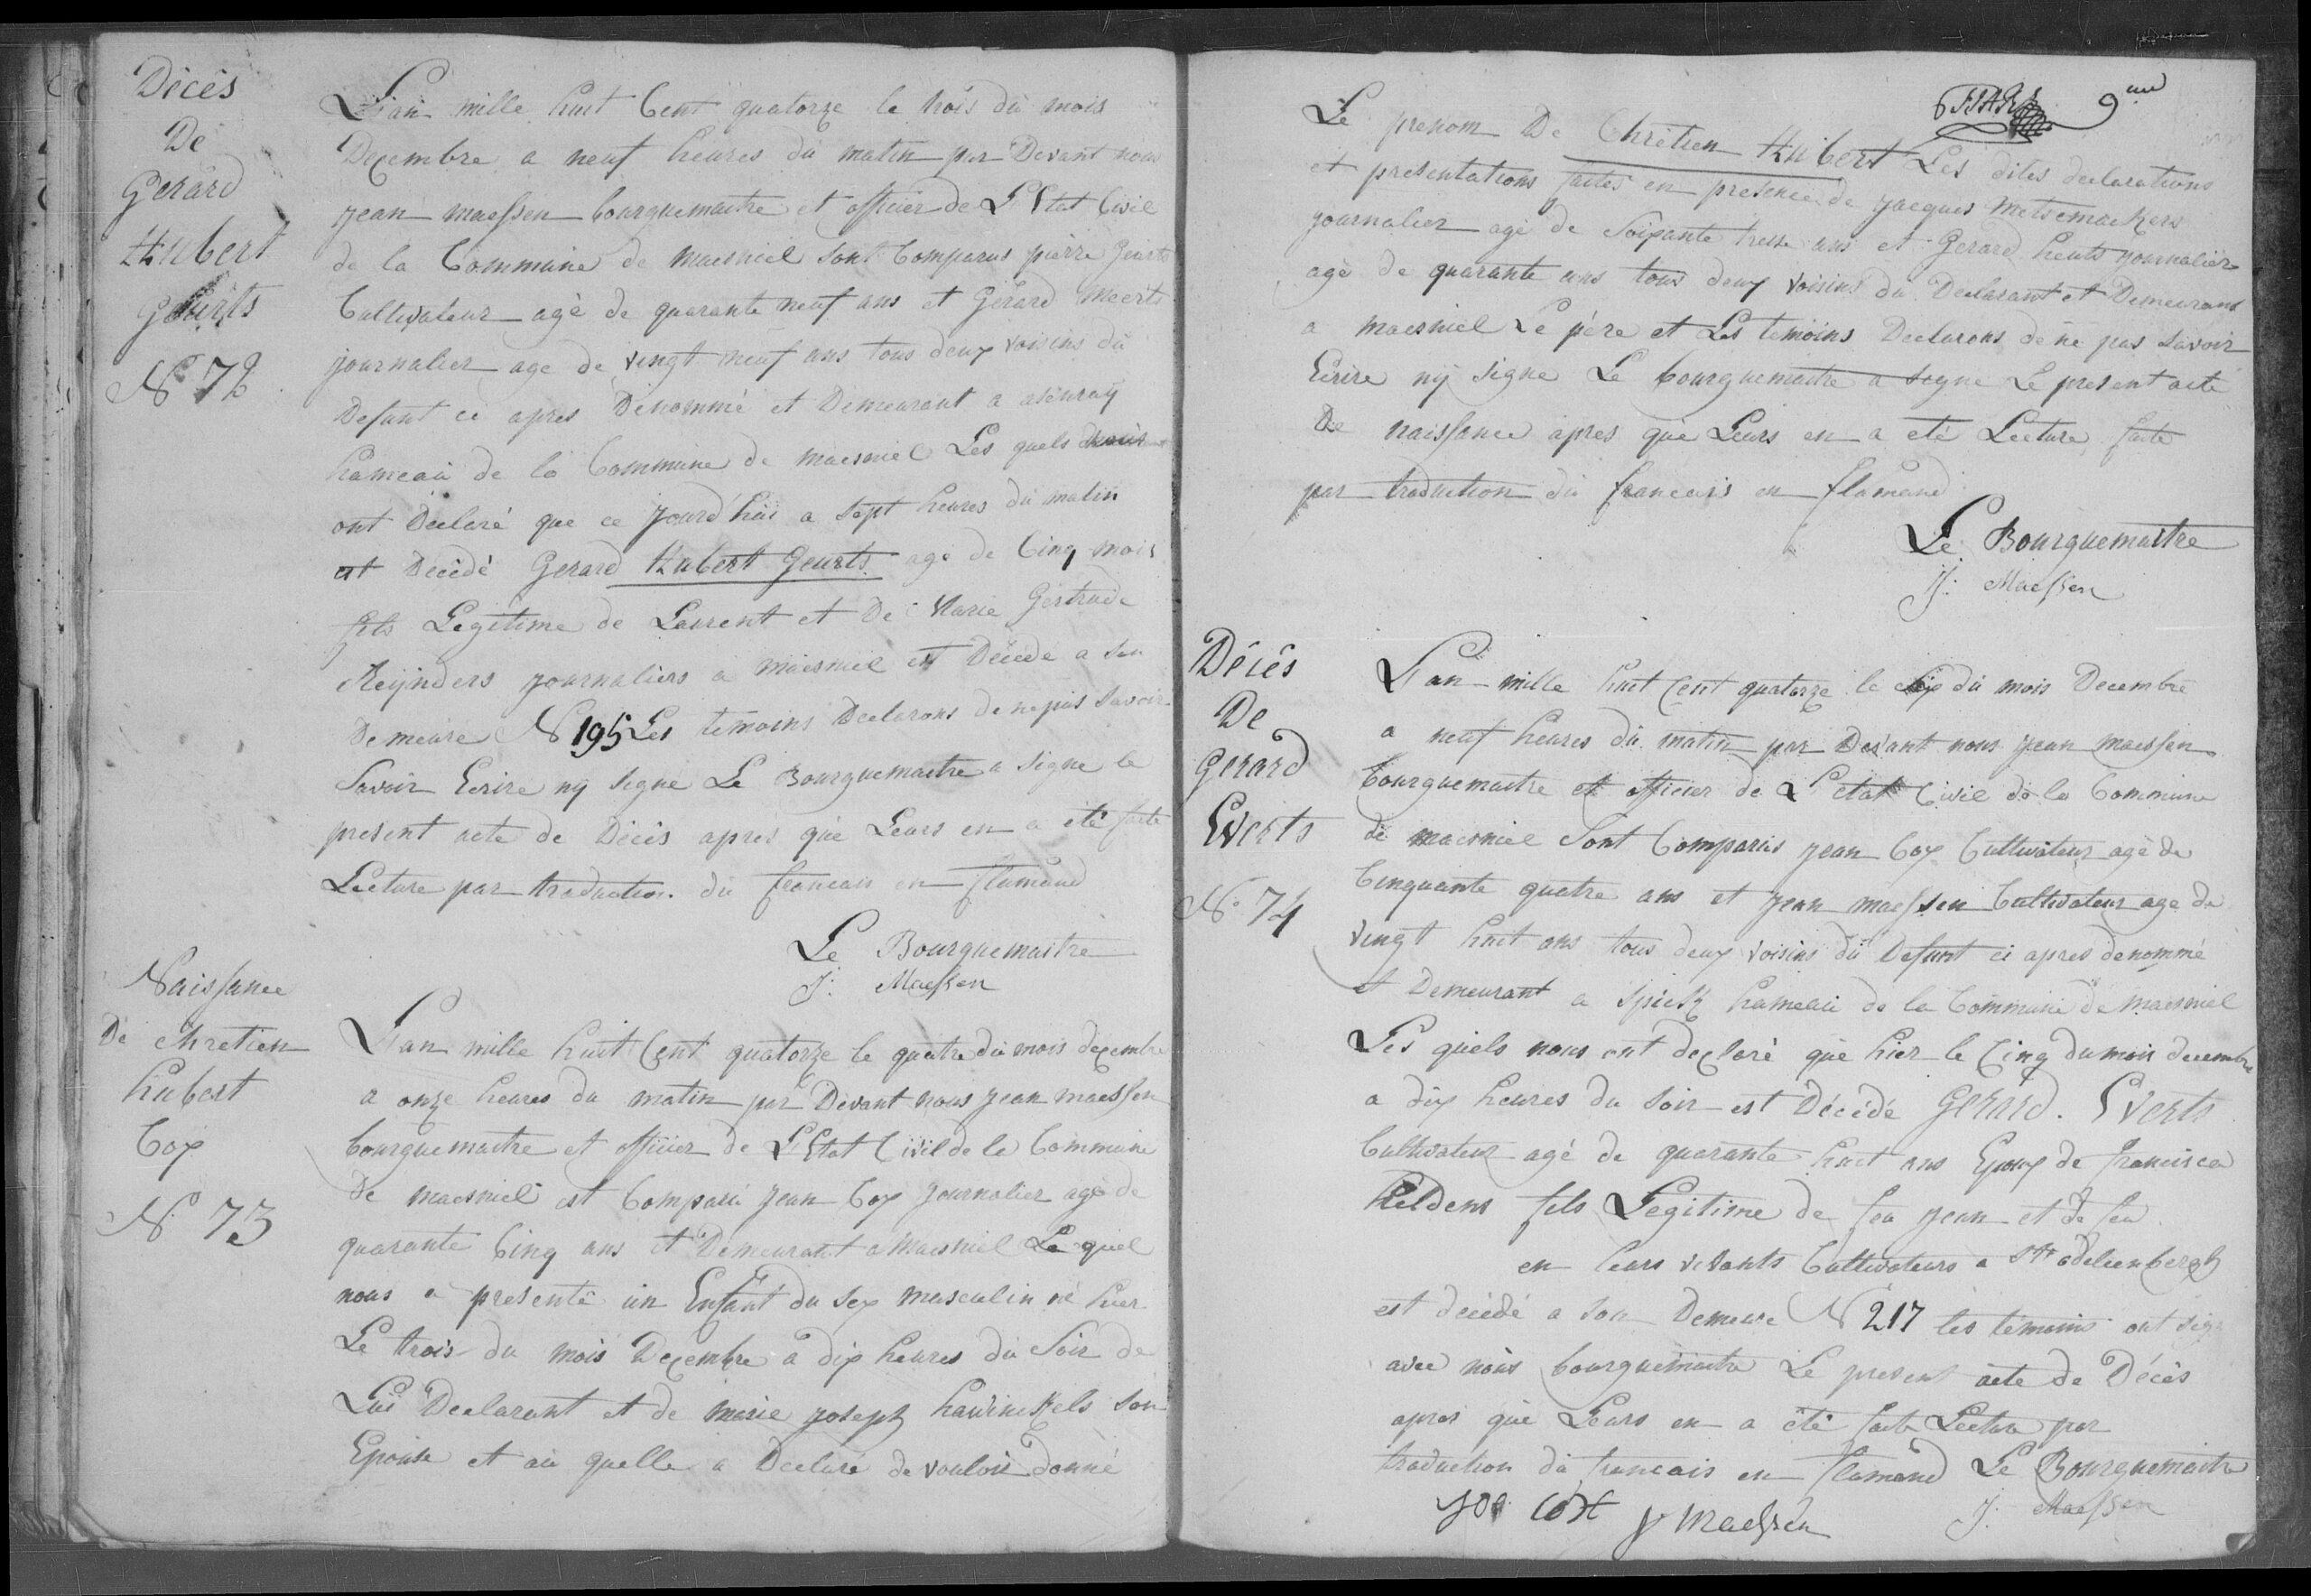 Décès
De
Gerard
Hubert
Geurts
N° 72
L'an mille huit Cent quatorze le trois du mois
Decembre a neuf heures du matin par Devant nous
jean maessen bourguemaitre et officier de L'Etat Civil
de la Commune de maesniel sont Comparus pierre Geurts
Cultivateur agé de quarante neuf ans et Gerard meerts
journalier age de vingt neuf ans tous deux voisins du
Defunt ci apres Dénommé et Demeurant a asenraÿ
hameau de la Commune de maesniel Les quels
ont Déclaré que ce jourd'hui a sept heures du matin
est Décédé Gerard Hubert Geurts agé de Cinq mois
fils Legitime de Laurent et De Marie Gertrude
Reijnders journaliers a maesniel est Décédé a son
Demeure N 195 Les temoins Declarons de ne pas savoir
Savoir Ecrire nÿ signe Le Bourguemaitre a signe le
present acte de Décès apres que Leurs en a été faite
Lecture par traduction du francais en flamand
Le Bourguemaitre
J: Maessen
Naissance
De chretien
hubert
Cox
N° 73
L'an mille huit Cent quatorze le quatre du mois decembre
a onze heures du matin par Devant nous jean maessen
bourguemaitre et officier de L'Etat Civil de la Commune
De maesniel est Comparu jean Cox journalier agé de
quarante Cinq ans et Demeurant a Maesniel Le quel
nous a presenté un Enfant du sex masculin né hier
Le trois du mois Decembre a dix heures du Soir de
Lui Declarant et de marie joseph hawinckels son
Epouse et au quelle a Declaré de vouloir donné
9me
Le prenom De Chrétien Hubert Les dites declarations
et presentations faites en presence de jacques metsemackers
journalier agé de Soixante treise ans et Gerard heuts journalier
agé de quarante ans tous deux voisins du Declarant et Demeurant
a maesniel Le père et Les temoins Declarons de ne pas savoir
Ecrire nÿ signe Le bourguemaitre a signe Le present acte
De naissance apres que Leurs en a eté Lecture faite
par traduction du francais en flamand
Le Bourguemaitre
J: Maessen
Décès
De
Gerard
Everts
N° 74
L'an mille huit Cent quatorze le six du mois Decembre
a neuf heures du matin par Devant nous jean maessen
bourguemaitre et officier de L'etat Civil de la Commune
de maesniel Sont Comparus jean Cox Cultivateur agé de
Cinquante quatre ans et jean maessen Cultivateur age de
vingt huit ans tous deux voisins du Defunt ci apres denommé
et Demeurant a spiek hameau de la Commune de maesniel
Les quels nous ont declaré que hier le Cinq du mois decembre
a dix heures du soir est Décédé Gerard. Everts
Cultivateur agé de quarante huit ans Epoux de francisca
heldens fils Legitime de feu jean et de feu
en leurs vivants Cultivateurs a Ste odelienbergh
est décédé a son Demeure N 217 les temoins ont signé
avec nous bourguemaitre Le present acte de Décès
apres que Leurs en a été faite Lecture par
traduction du francais en flamand Le Bourguemaitre
J: Maessen
Cox J Maessen